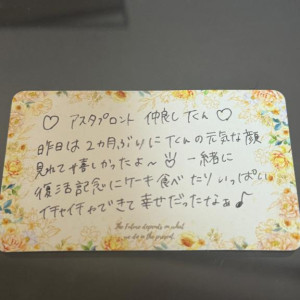 ♡ アスタプロント 仲良しTくん ♡
昨日は2カ月ぶりにTくんの元気な顔
見れて嬉しかったよ〜 一緒に
復活記念にケーキ食べたりいっぱい
イチャイチャできて幸せだったなぁ♪
The future depends on what
we do in the present.